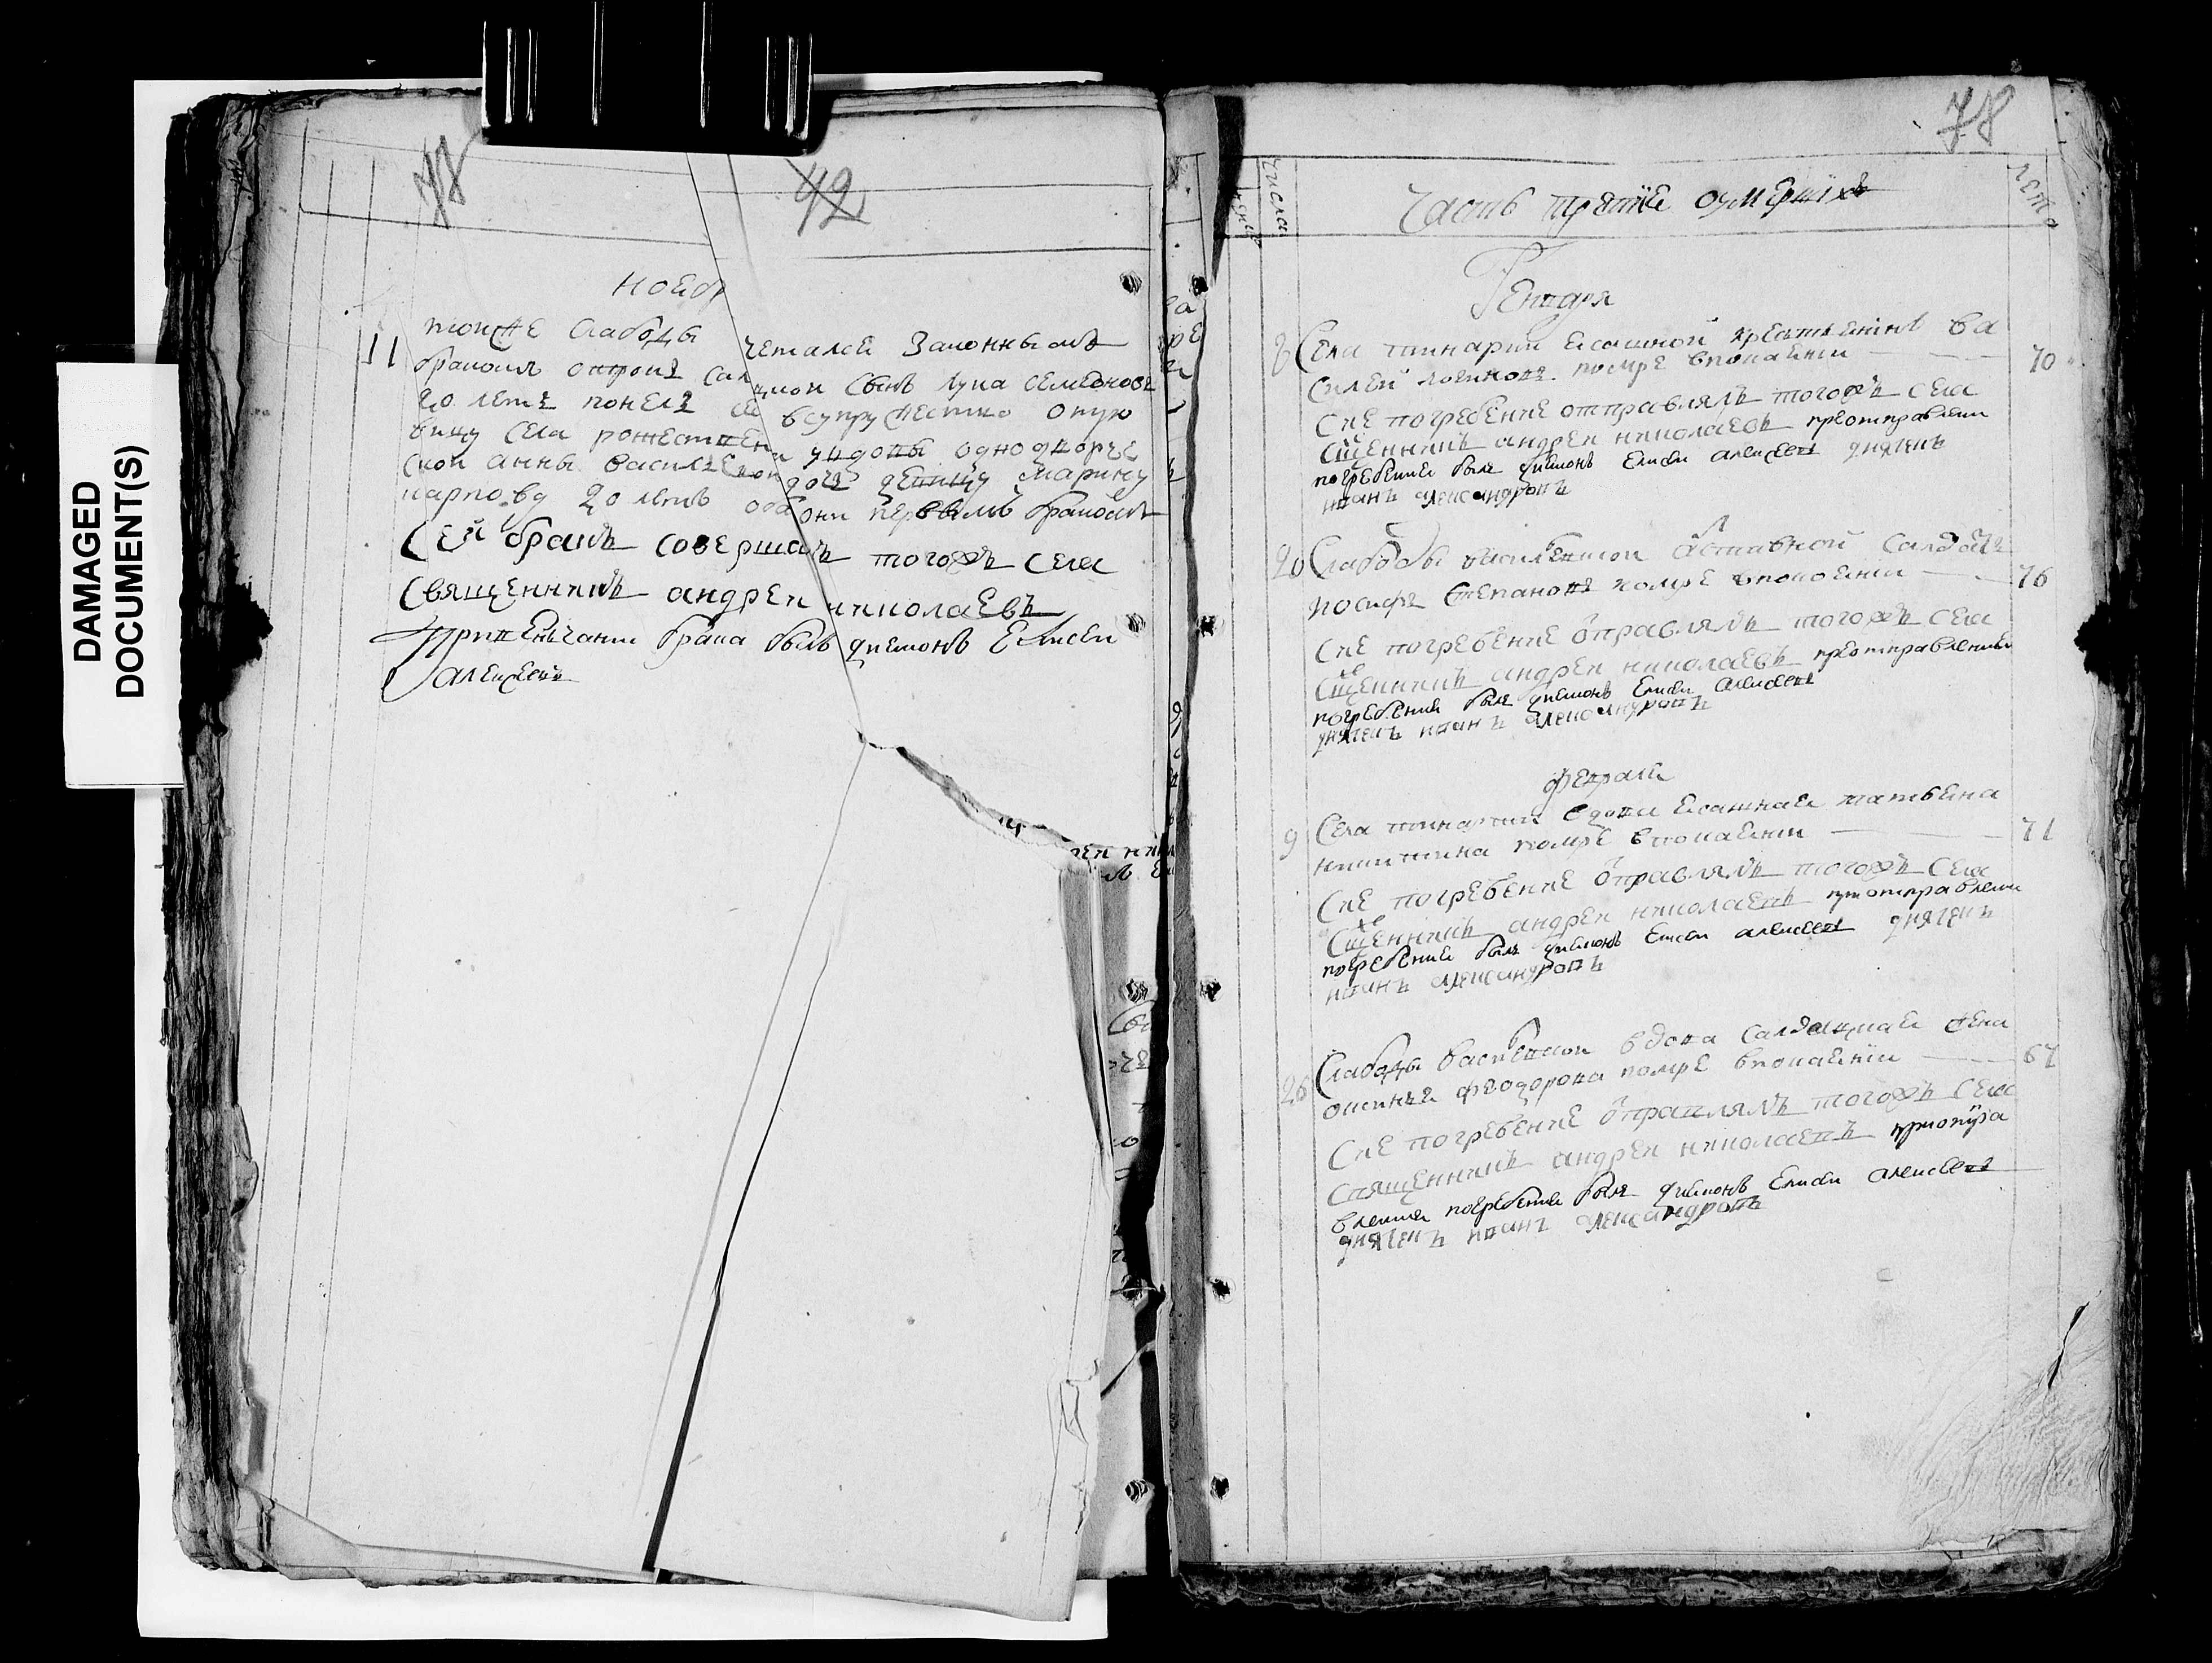 DAMAGED
DOCUMENT(S)
78
42
ноебр
11 тоюже слабоды четался Законнымъ
бракомъ отрокъ сал сынъ лука семеновъ
20 летъ понелъ всупружество отро
вицу села рожественъ удовы однодворче
ской анны васил дочь девицу марину
карпову 20 летъ оба они первымъ бракомъ
Сей бракъ совершалъ тогожъ села
Священникъ андреи николаевъ
При венъчании брака былъ диемонъ Елисеи
алексеевъ
78
числа
лета
Часть третие оумершихъ
Генваря
8 Села тинарки ясашной крестьенинъ ва
силей логиновъ помре впокаении 70
Сие погребение отправлялъ тогожъ села
Сщенникъ андреи николаевъ приотправлении
погребении былъ диемонъ Елисеи алексеевъ диячекъ
иванъ александровъ
20 Слабоды василевкои отставной Салдатъ
иосифъ Степановъ помре впокоении 76
Сие погребение отправлялъ тогожъ села
Сщенникъ андреи николаевъ приотправлении
погребении былъ диемонъ Елисеи алексеевъ
диячекъ иванъ александровъ
февраля
9 Села тинарки вдова ясашная матвеина
никитина помре впокаении 71
Сие погребение отправлялъ тогожъ села
Сщенникъ андреи николаевъ приотправлении
погребении былъ диемонъ Елисеи алексеевъ диячекъ
иванъ александровъ
26 Слабоды василевкои вдова салдацкая жена
аксинья феодорова помре впокаении 67
Сие погребение отправлялъ тогожъ села
Священникъ андреи николаевъ приотпра
влении погребении былъ диемонъ Елисеи алексеевъ
диячекъ иванъ александровъ